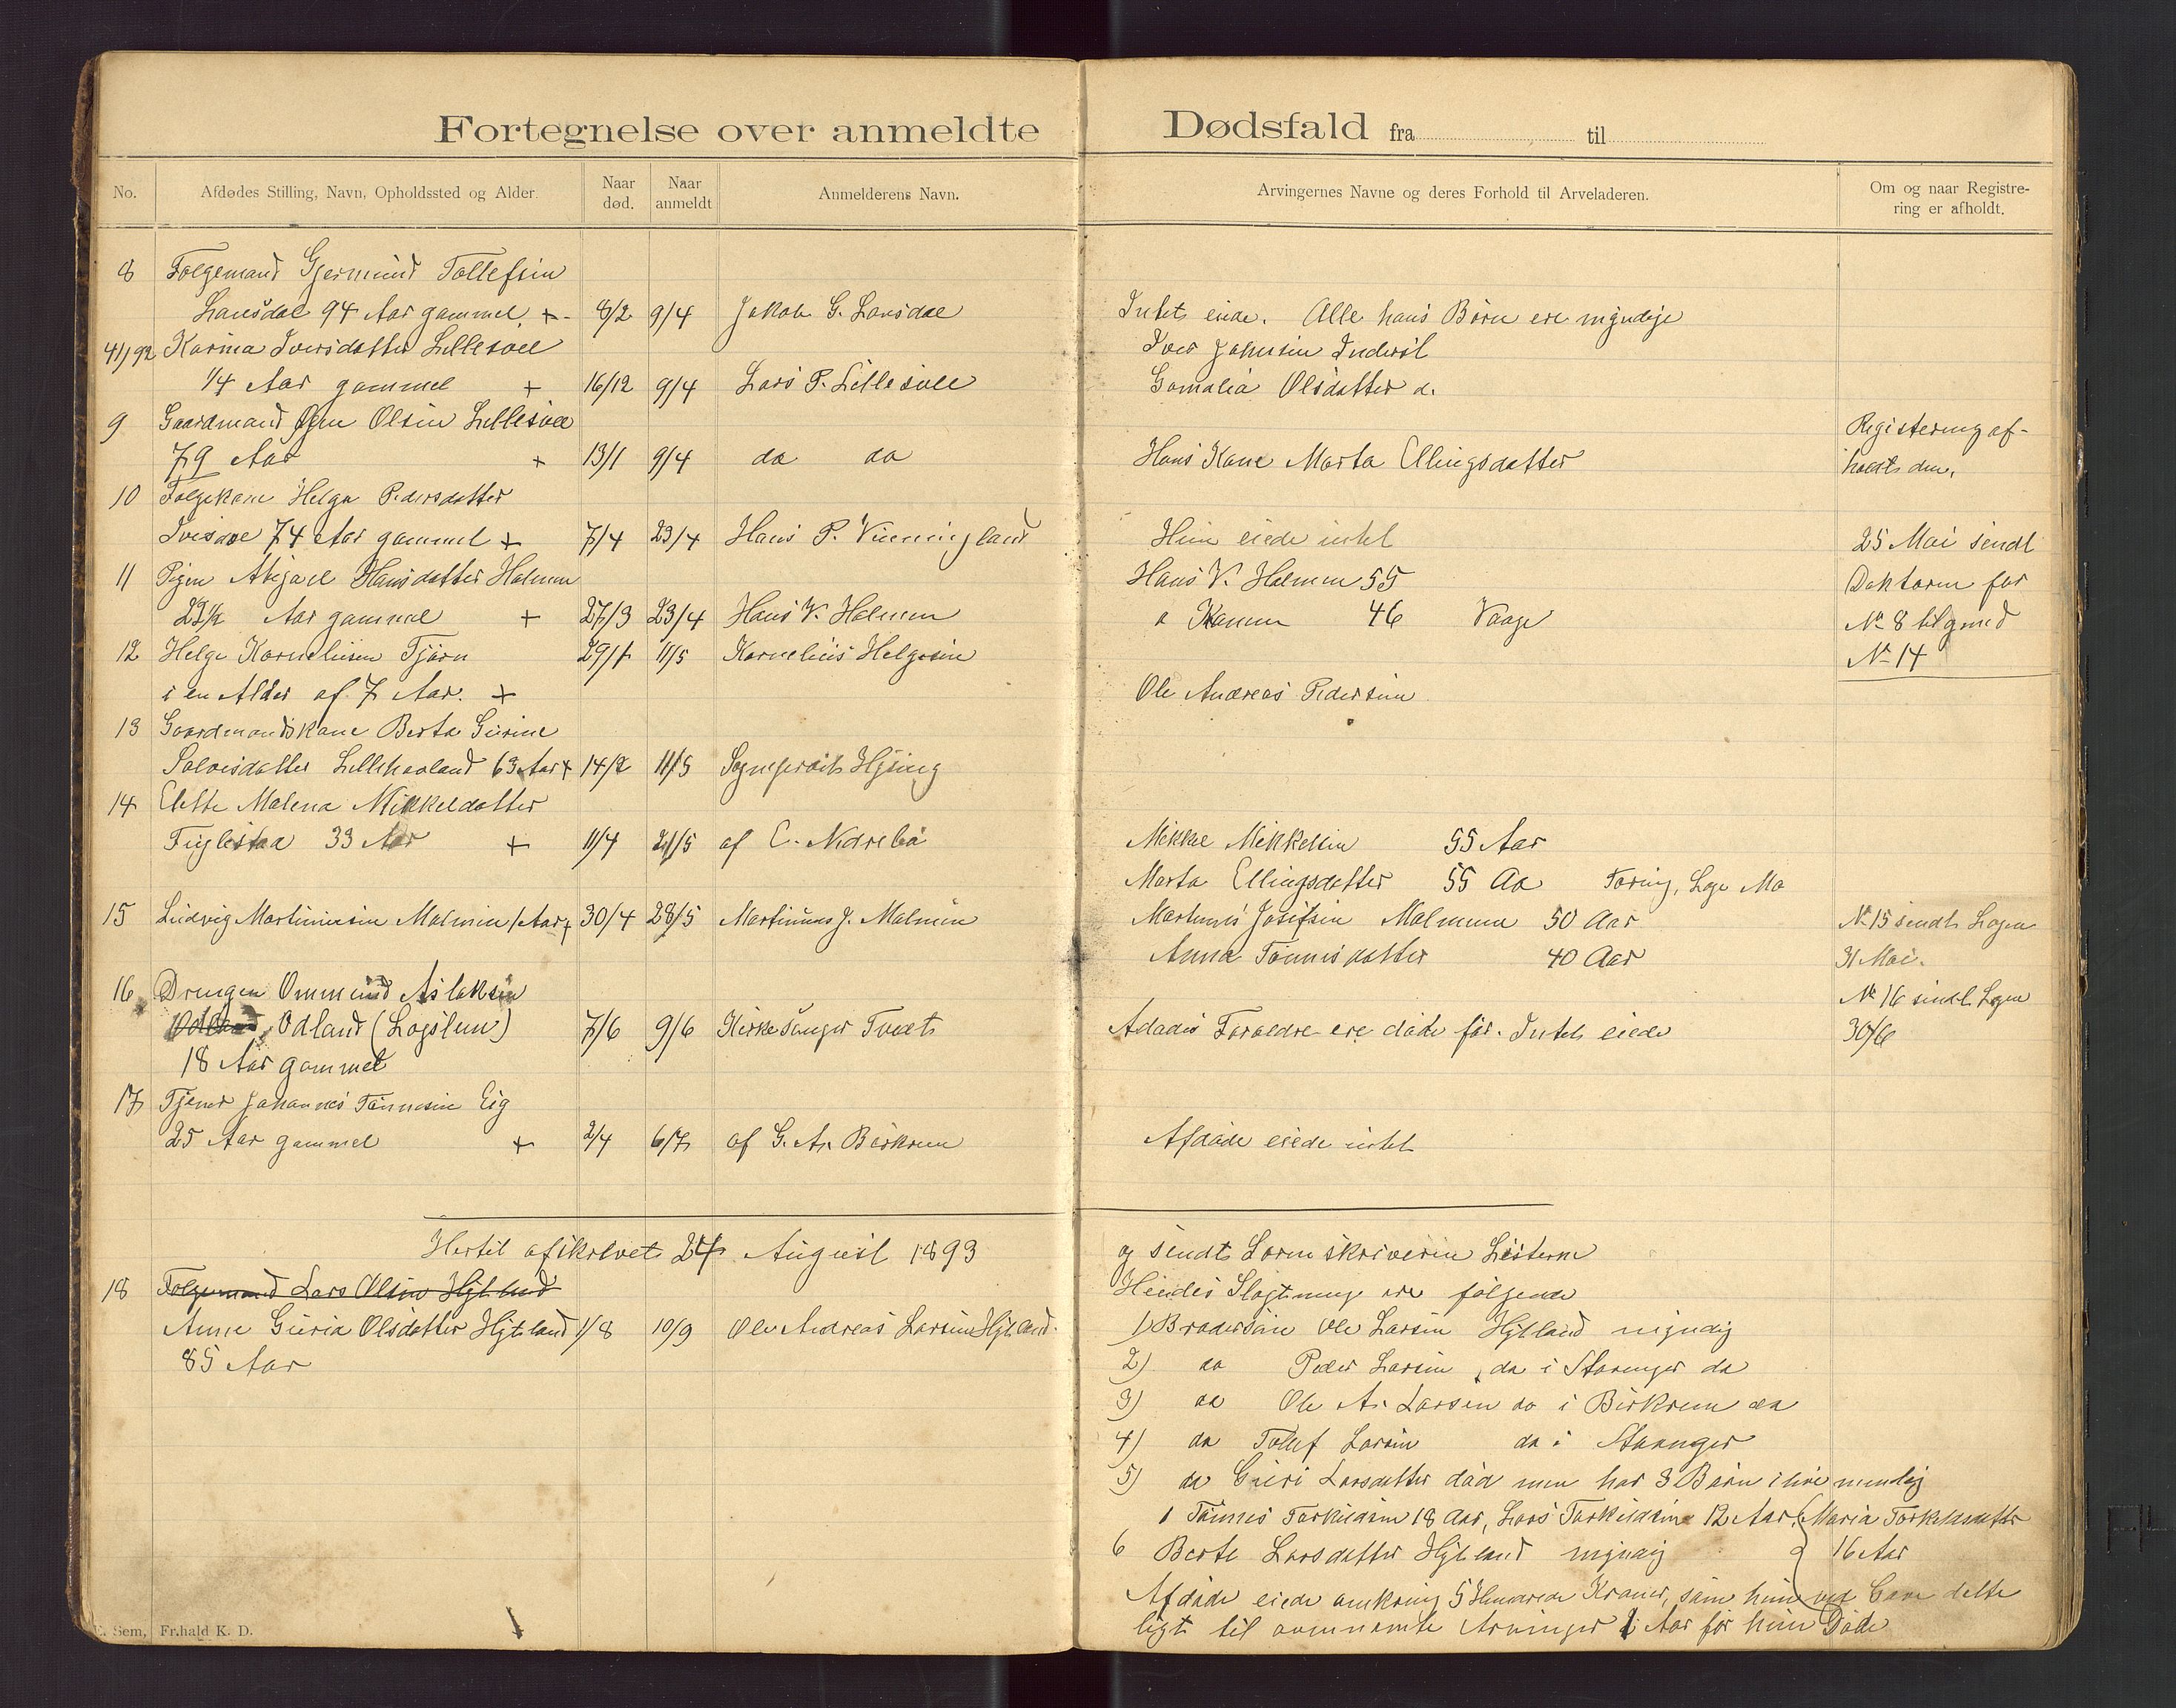 Fortegnelse over anmeldte Dødsfald fra til
No. Afdødes Stilling, Navn, Opholdssted og Alder. Naar død. Naar anmeldt Anmelderens Navn. Arvingernes Navne og deres Forhold til Arveladeren. Om og naar Registrering er afholdt.
8 Følgemand Gjermund Tollefsen
94 Aar gammel + 8/2 9/4 Jakob G. Intet eiede. Alle hans Børn ere myndige
41/92 Karina Iversdatter Iver
1/4 Aar gammel + 16/12 9/4 Lars P. Olsdatter d.
9 Gaardmand Olsen
79 Aar + 13/1 9/4 do do Hans Kone Marta Ellingsdatter
Registering af-
holdt den.
10 Følgekone Helga Pedersdatter
74 Aar gammel + 7/4 23/4 Hans P. Vinningland Hun eiede intet
25 Mai sendt
11 Pigen Abigael Hansdatter Holmen Hans V. Holmen 55 Doktoren for
Aar gammel + 27/3 23/4 Hans V. Holmen 46 No 8 til
12 Helge Korneliusen Tjørn 11/5 Kornelius Helgesen No 14
i en Alder af 7 Aar. + Ole Andreas Pedersen
13 Gaardmandskone Berta Gurine
63 Aar + 14/2 11/5
14 Elette Malena Mikkeldatter
Fuglestad 33 Aar + 11/4 21/5 af Mikkel Mikkelsen 55 Aar
Marta Ellingsdatter 55 Aa
15 Ludvig Martinusen Malmin 1 Aar + 30/4 28/5 Martinus J. Malmin Martinus Josefsen 50 Aar No 15 sendt Lægen
Anna Tønnesdatter 40 Aar 31 Mai.
16 Drengen Ommund Aslaksen No 16 sendt Lægen
Odland (Lægslem) 7/6 9/6 Kirkesanger Tveit Forældre ere døde før. Intet eiede 30/6
18 Aar gammel
17 Tjener Johannes Tønnesen Eig
25 Aar gammel + 2/4 6/7 af G. A. Birkrem Afdøde eiede intet
Hertil afskrevet 24 August 1893 og sendt Sorenskriveren
18 Følgemand Lars Olsen Hytland Hendes Slægtninge ere følgende
Anne Guria Olsdatter Hytland 1/8 10/9 Ole Andreas Larsen Hytland. 1) Brodersøn Ole Larsen Hytland myndig
85 Aar 2) do Peder Larsen, do i Stavanger do
3) do Ole A. Larsen do i Birkrem do
4) do Tollef Larsen do i Stavanger
5) do Guri Larsdatter død men har 3 Børn i live nemlig
1 Tønnes Torkildsen 18 Aar, Lars Torkildsen 12 Aar, Maria Torkildsdatter
16 Aar
6 Berte Larsdatter Hytland myndig
Afdøde eiede omkring 5 Hundrede Kroner, som hun ved Gave delte
ligt til ovennevnte Arvinger 1 Aar før hun Døde
E. Sem, Fr.hald K. D.